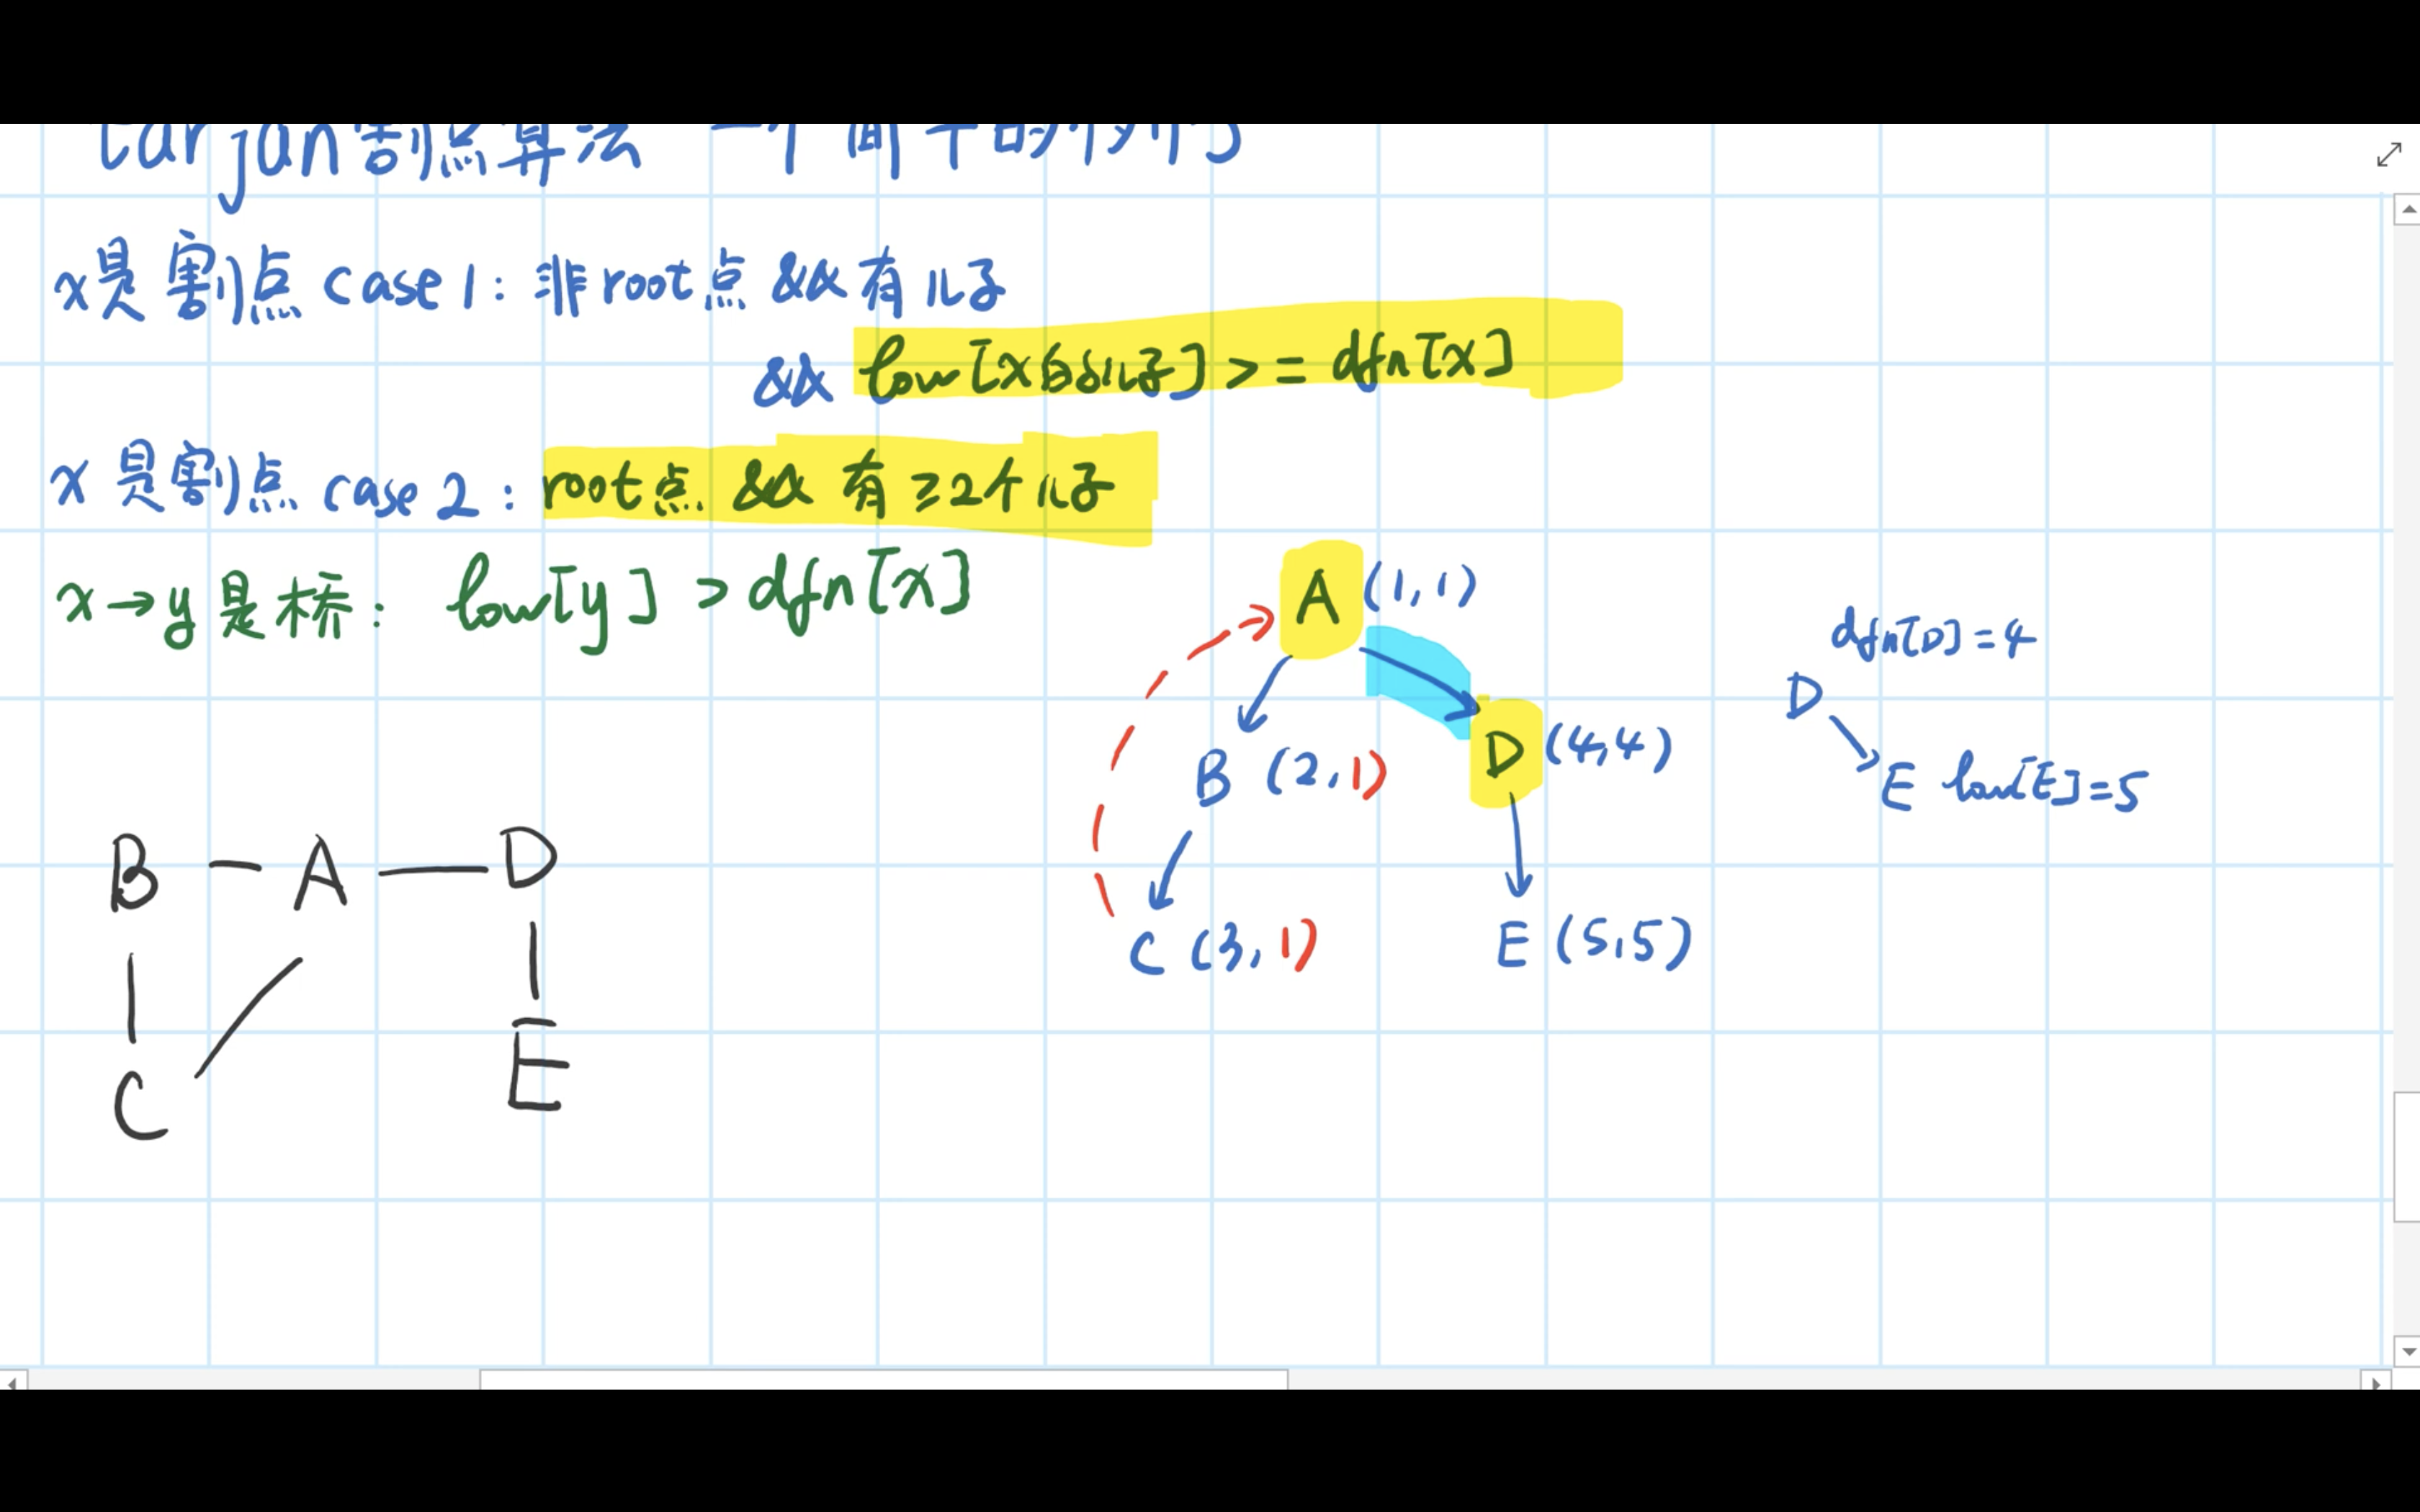 tarjan割点算法 一个简单的例子
x是割点 case 1: 非root点 && 有儿子
&& low[x的儿子] >= dfn[x]
x是割点 case 2: root点 && 有≥2个儿子
x→y是桥: low[y] > dfn[x]
A (1,1)
dfn[D]=4
D
B (2,1)
D (4,4)
E low[E]=5
B - A — D
C (3,1)
E (5,5)
C
E